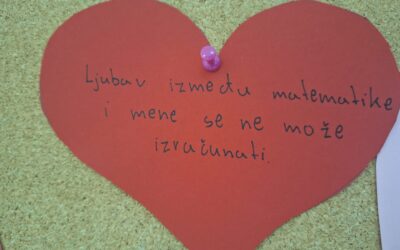 Ljubav između matematike
i mene se ne može
izračunati.